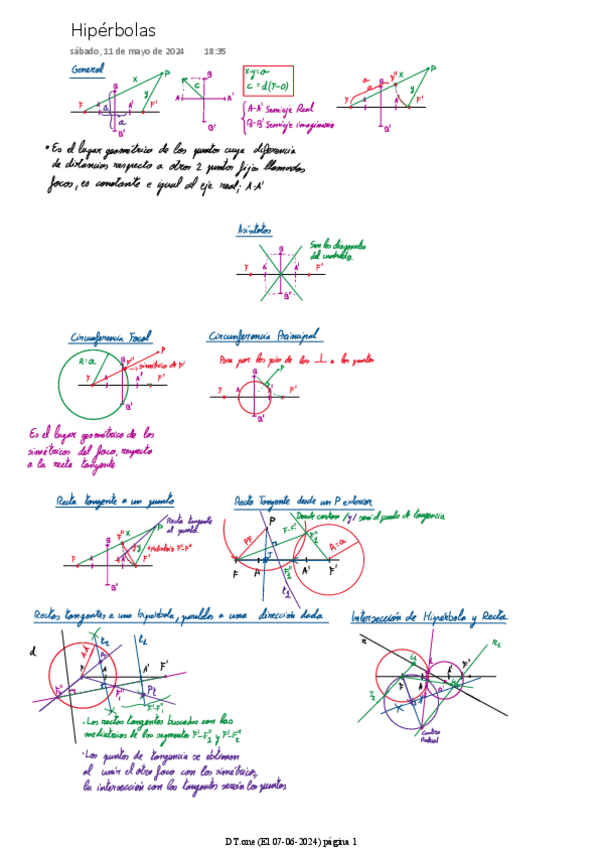 Hipérbolas
sábado, 11 de mayo de 2024 18:35
General
x-y=a
c = d(F-O)
A-A' Semieje Real
B-B' Semieje imaginario
• Es el lugar geométrico de los puntos cuya diferencia
de distancias respecto a otros 2 puntos fijos llamados
focos, es constante e igual al eje real; A-A'
Asíntotas
Son las diagonales
del
Circunferencia Focal
R=a
simétrico de F'
Es el lugar geométrico de los
simétricos del foco, respecto
a la recta tangente
Circunferencia Principal
Pasa por los pies de las ⊥ a las
Recta tangente a un punto
Recta tangente
al punto.
Mediatriz F'-F''
Recta Tangente desde un P exterior
Donde cortan será el punto de tangencia
PF
F-F'
R=a
Rectas tangentes a una hipérbola, paralelas a una dirección dada
d
- Las rectas tangentes buscadas son las
mediatrices de los segmentos F'-F''1 y F'-F''2
- Los puntos de tangencia se obtienen
al unir el otro foco con los simétricos,
la intersección con las tangentes serán los puntos
Intersección de Hipérbola y Recta
Centro
Radical
DT.one (EI 07-06-2024) página 1